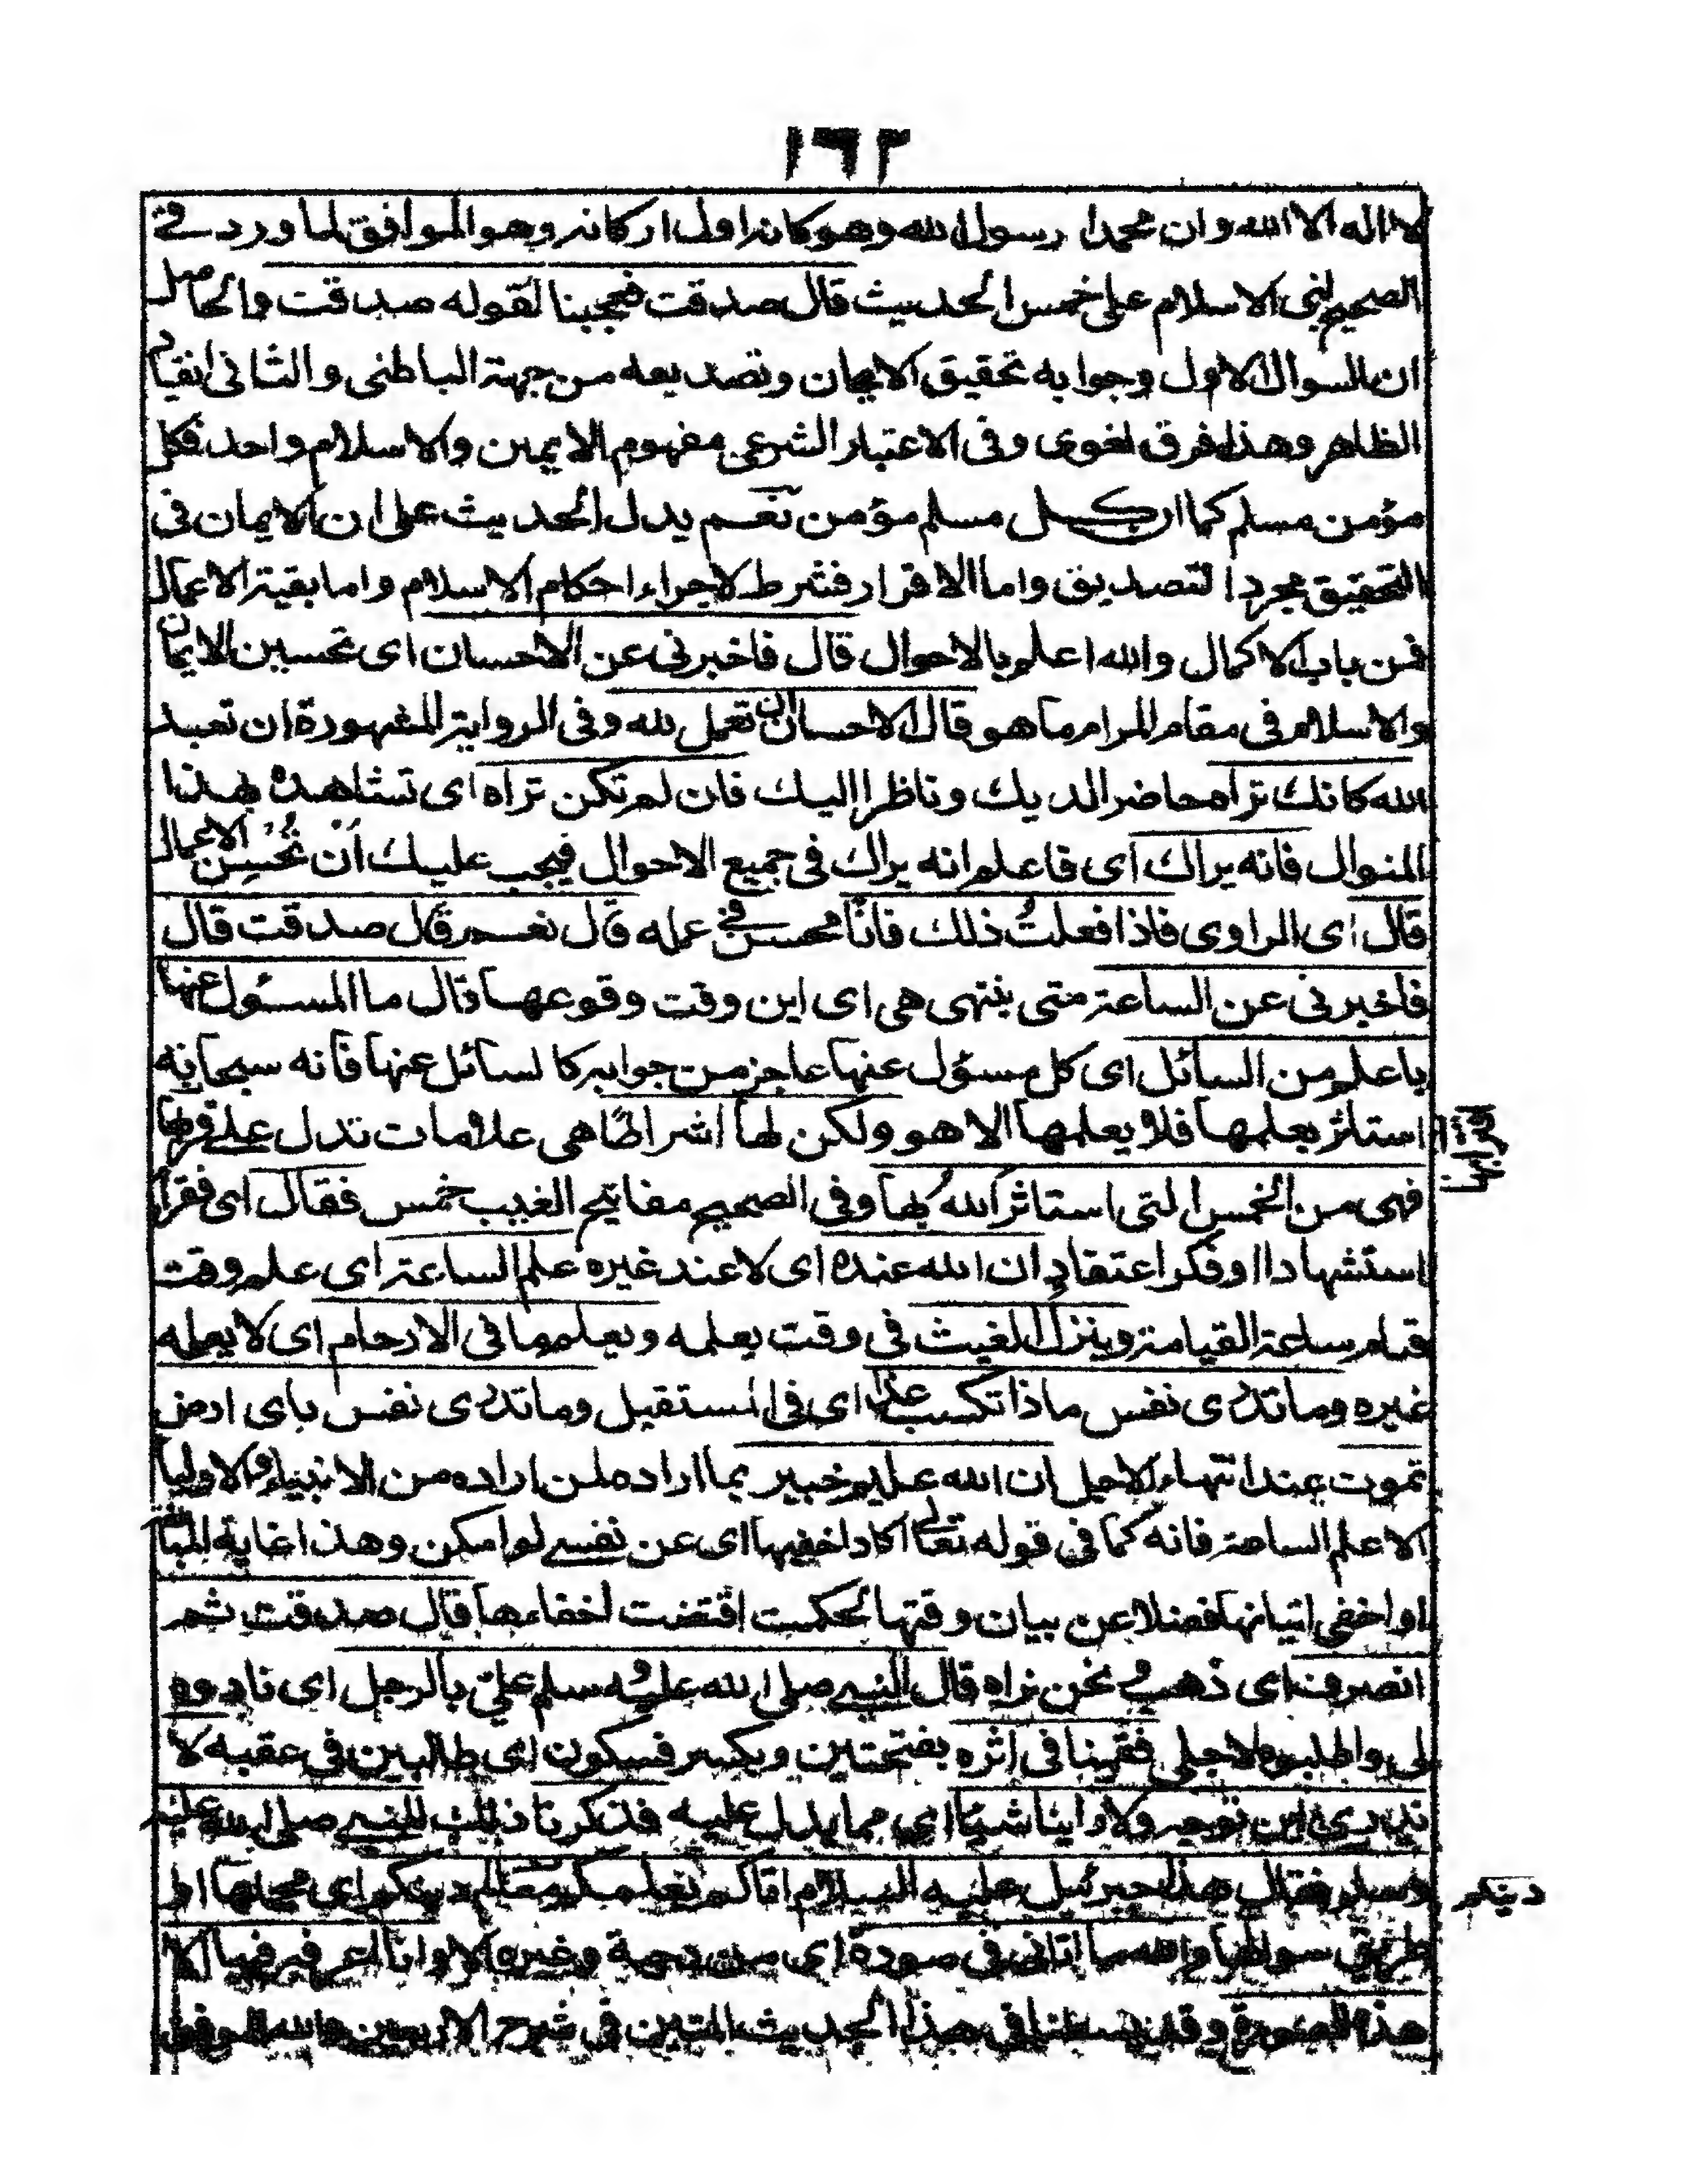 ١٦٢
لا اله الا الله وان محمدا رسول الله وهو كانه اول اركانه وهو الموافق لما ورد في
الصحيح بنى الاسلام على خمس الحديث قال صدقت فعجبنا لقوله صدقت والحاصل
ان السوال الاول وجوابه تحقيق الايمان وتصديقه من جهة الباطنى والثانى انقياد
الظاهر وهذا فرق لغوى وفى الاعتبار الشرعى مفهوم الايمين والاسلام واحد فكل
مؤمن مسلم كما ان كل مسلم مؤمن نعم يدل الحديث على ان الايمان فى
التحقيق مجرد التصديق واما الاقرار فشرط لاجراء احكام الاسلام واما بقية الاعمال
فمن باب الاكمال والله اعلم بالاحوال قال فاخبرنى عن الاحسان اى تحسين الايمان
والاسلام فى مقام المرام ما هو قال الاحسان ان تعمل لله وفى الرواية المشهورة ان تعبد
الله كانك تراه حاضرا لديك وناظرا اليك فان لم تكن تراه اى تشاهده بهذا
المنوال فانه يراك اى فاعلم انه يراك فى جميع الاحوال فيجب عليك أن تُحسِن الاعمال
قال اى الراوى فاذا فعلتُ ذلك فانا محسن في عمله قال نعم قال صدقت قال
فاخبرنى عن الساعة متى ينتهى هى اى اين وقت وقوعها قال ما المسئول عنها
باعلم من السائل اى كل مسئول عنها عاجز من جوابه كالسائل عنها فانه سبحانه
استاثر بعلمها فلا يعلمها الا هو ولكن لها اشراطًا هى علامات تدل على قربها
فهى من الخمس التى استاثر اللهُ بها وفى الصحيح مفاتيح الغيب خمس فقال اى فقرأ
استشهادا او فكر اعتقادٍ ان الله عنده اى لا عند غيره علم الساعة اى علم وقت
قيام ساعة القيامة وينزل الغيث فى وقت يعلمه ويعلم ما فى الارحام اى لا يعلمه
غيره وما تدرى نفس ماذا تكسب غدا اى فى المستقبل وما تدرى نفس باى ارض
تموت عند انتهاء الاجل ان الله عليم خبير بما اراده لمن اراده من الانبياء والاولياء
الا علم الساعة فانه كما فى قوله تعالى اكاد اخفيها اى عن نفسى لو امكن وهذا غاية المبالغة
او اخفى اتيانها فضلا عن بيان وقتها لحكمة اقتضت اخفاءها قال صدقت ثم
انصرف اى ذهب ونحن نراه قال النبي صلى الله عليه وسلم علىّ بالرجل اى نادوه
لى واطلبوه لاجلى فقمنا فى اثره بفتحتين وبكسر فسكون اى طالبين فى عقبه لا
ندرى اين توجه ولا راينا شيئا اى مما يدل عليه فذكرنا ذلك للنبي صلى الله عليه
وسلم فقال هذا جبرئيل عليه السلام اتاكم يعلمكم معالم دينكم اى محلها او
دينكم
طريق سوالها والله ما اتانى فى صورة اى من دحية وغيره الا وانا اعرفه فيها الا
هذه الصورة وقد بسطنا فى هذا الحديث المتين فى شرح الاربعين والله الموفق